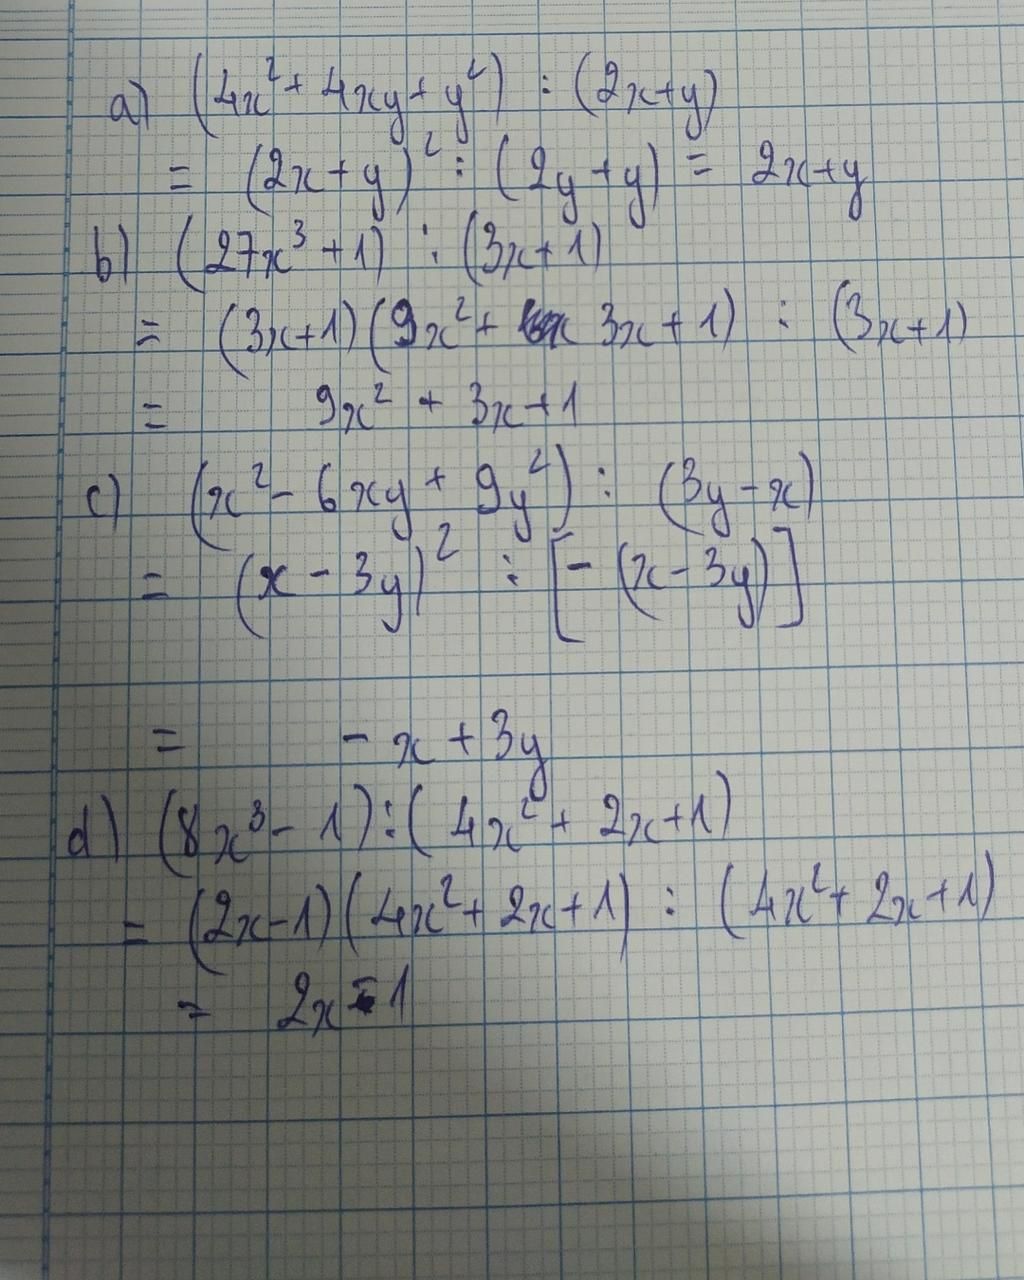 a) (4x² + 4xy + y²) : (2x+y)
= (2x+y)² : (2y+y) = 2x+y
b) (27x³ + 1) : (3x+1)
= (3x+1)(9x² + 3x + 1) : (3x+1)
= 9x² + 3x + 1
c) (x² - 6xy + 9y²) : (3y - x)
= (x - 3y)² : [- (x - 3y)]
= - x + 3y
d) (8x³ - 1) : (4x² + 2x+1)
= (2x-1)(4x² + 2x+1) : (4x² + 2x+1)
= 2x - 1